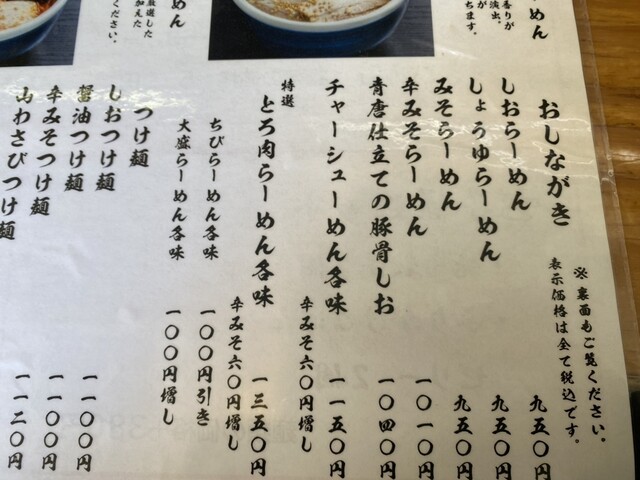 おしながき
※裏面もご覧ください。
表示価格は全て税込です。
しおらーめん 九五〇円
しょうゆらーめん 九五〇円
みそらーめん 九五〇円
辛みそらーめん 一〇一〇円
青唐仕立ての豚骨しお 一〇四〇円
チャーシューめん各味 一一五〇円
辛みそ六〇円増し
特選
とろ肉らーめん各味 一三五〇円
辛みそ六〇円増し
ちびらーめん各味 一〇〇円引き
大盛らーめん各味 一〇〇円増し
つけ麺
しおつけ麺 一一〇〇円
醤油つけ麺 一一〇〇円
辛みそつけ麺 一一二〇円
山わさびつけ麺